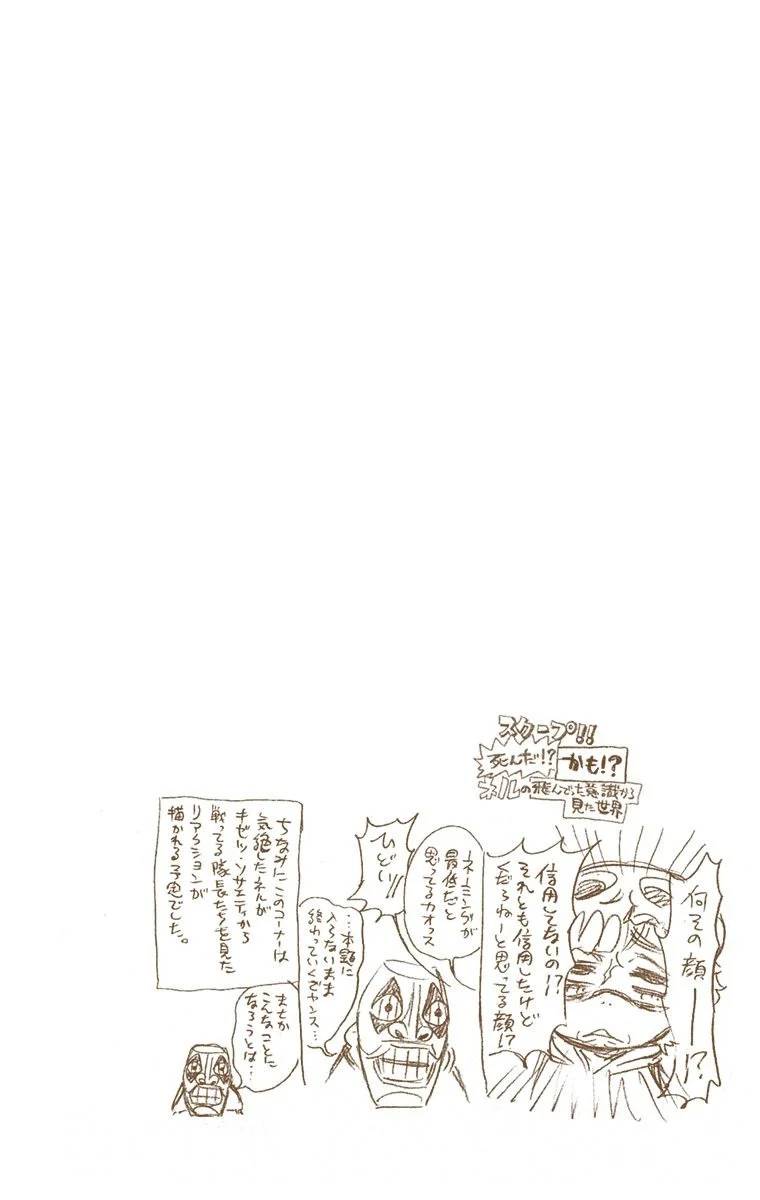 スクープ!!
死んだ!?
かも!?
ネルの飛んでった意識から
見た世界
何その顔ー!?
信用してないの!?
それとも信用したけど
くだらねーと思ってる顔!?
ネーミングが
最低だと
思ってるカオっス
ひどい!!
…本題に
入らないまま
終わっていくでヤンス…
ちなみにこのコーナーは
気絶したネルが
キゼツ・ソサエティから
戦ってる隊長たちを見た
リアクションが
描かれる予定でした。
まさか
こんなことに
なろうとは…